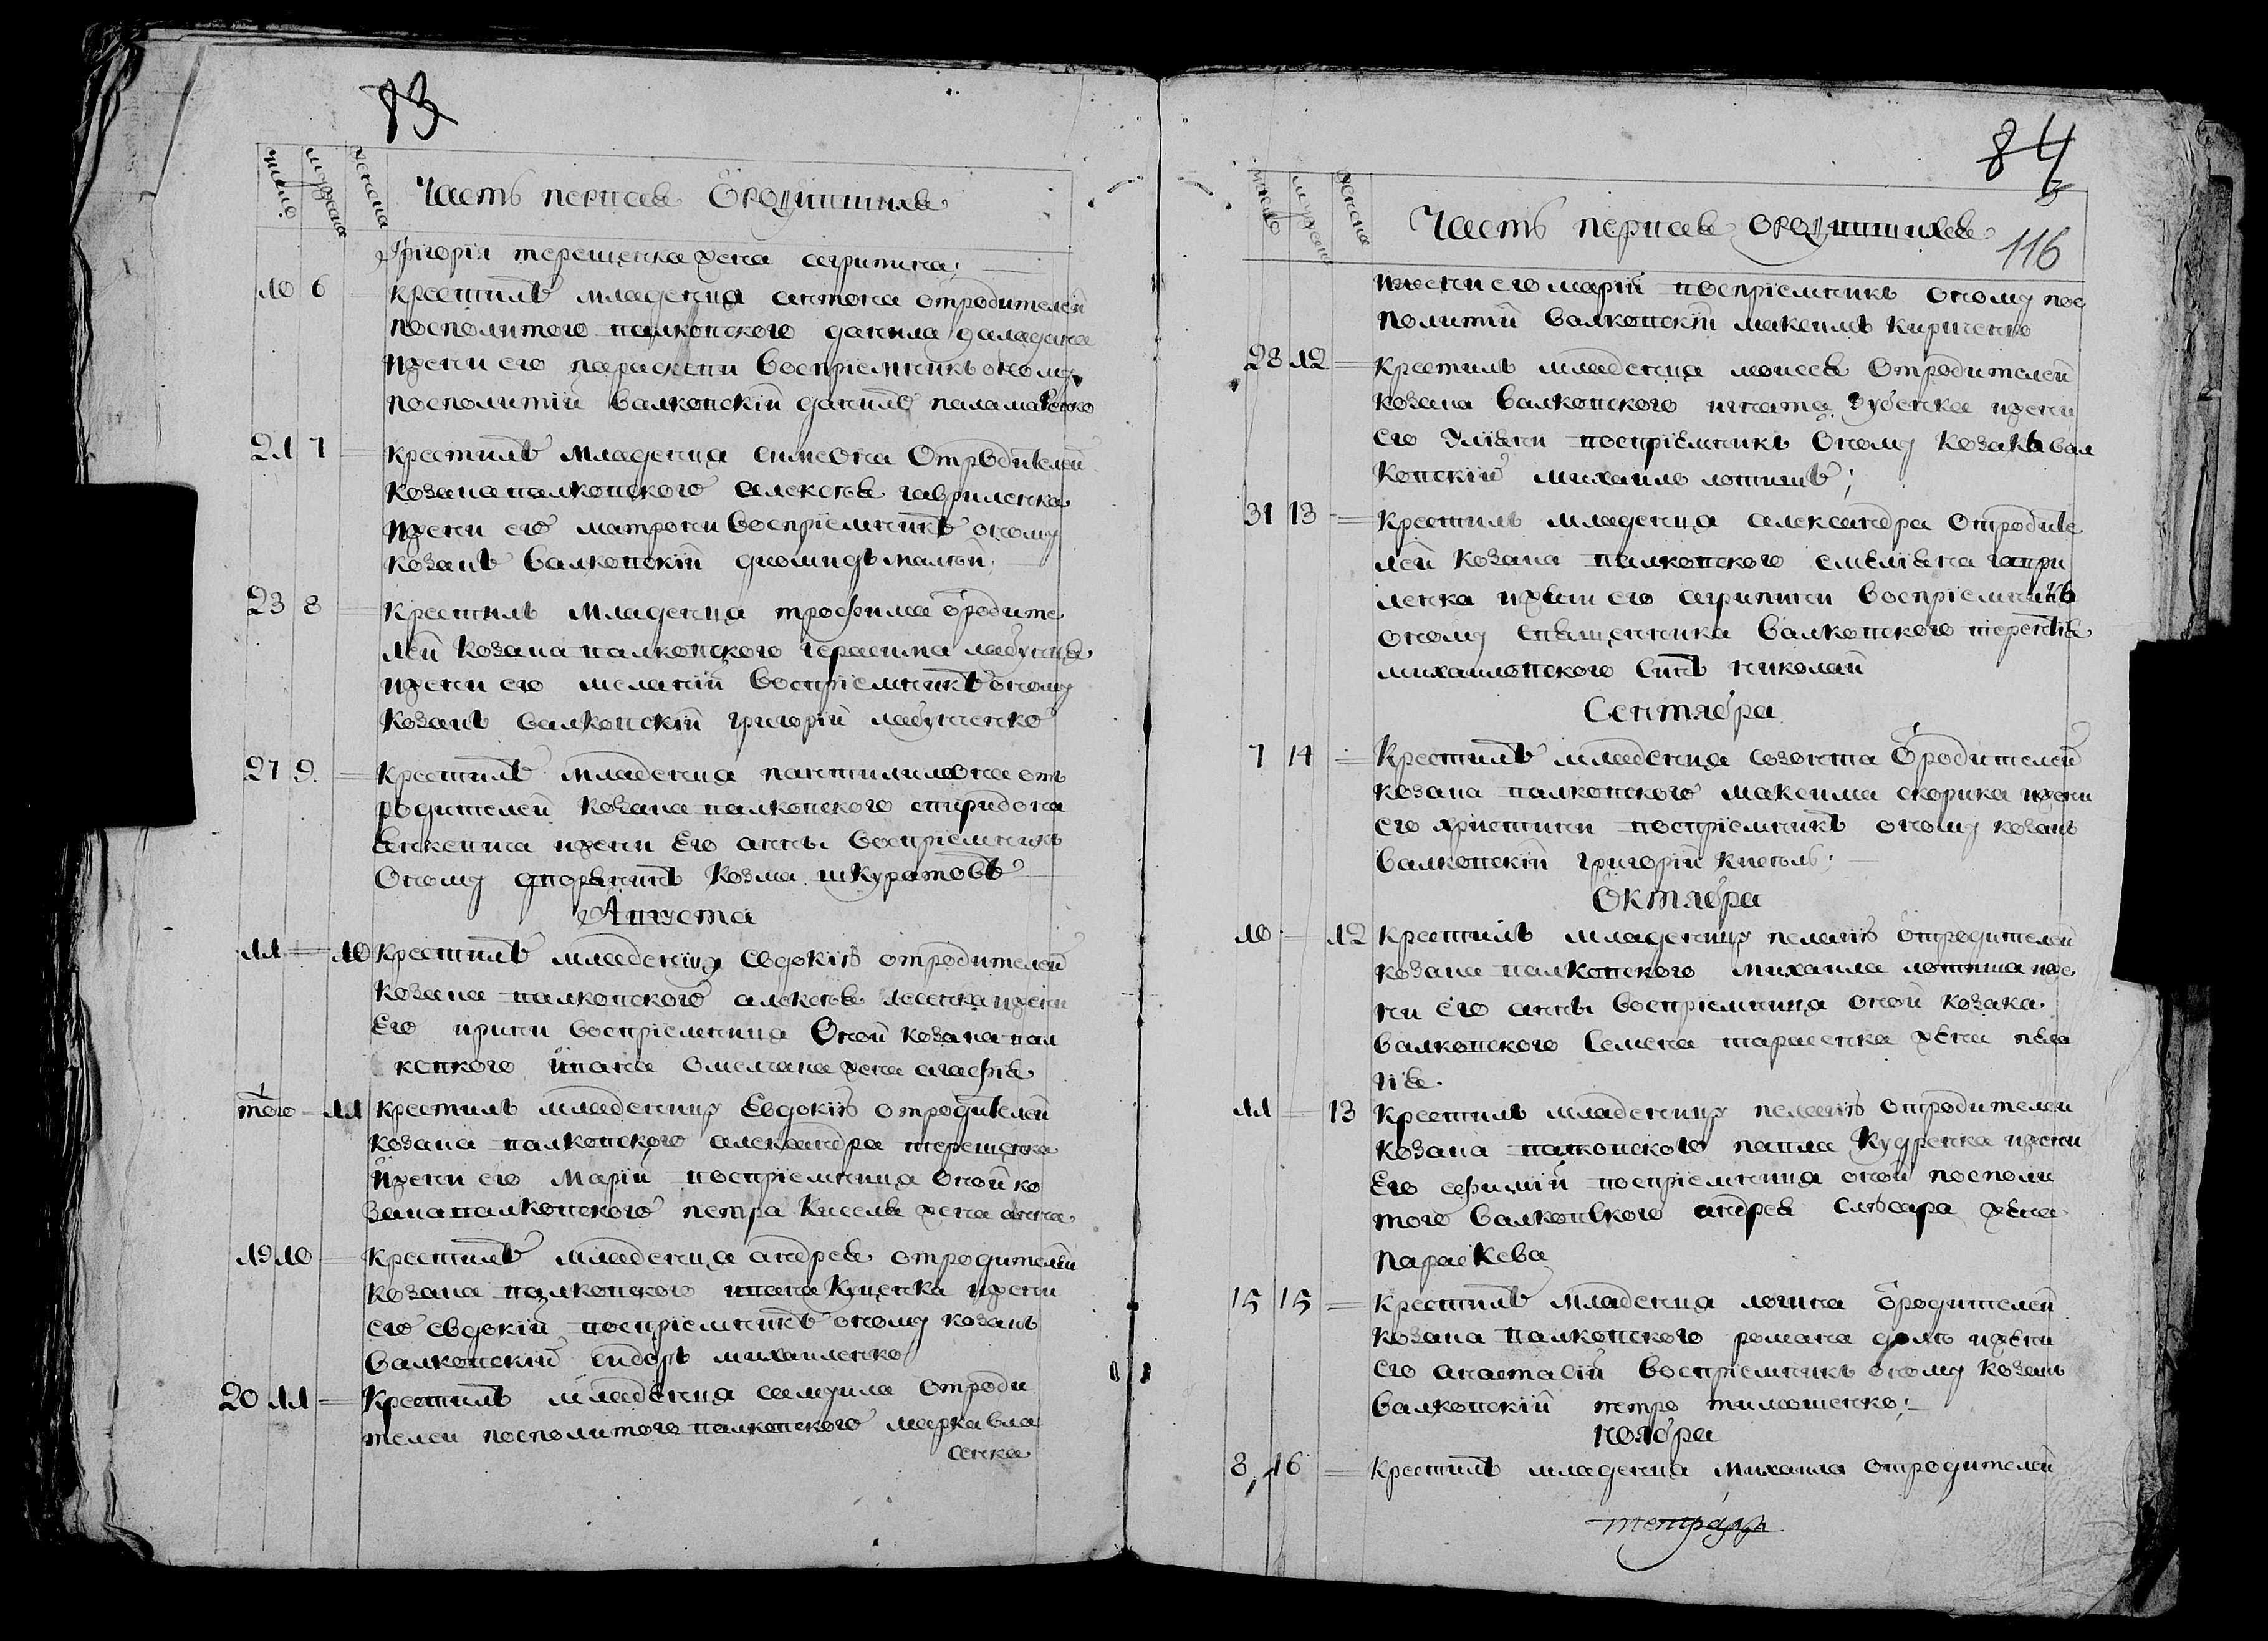 83
число мужеска женска
Часть первая ѡ родившихся
Григорія терещенка жена агрипина;
10 6 крестилъ младенца антона отродителей
посполитого валковского данила
жени его параскеви воспріемникъ оному
посполитій валковскій данило паламаренко
21 7 крестилъ младенца симеона отродителей
козака валковского алексѣя гавриленка
жени его матрони воспріемникъ оному
козакъ валковскій диомидъ малѣй;
23 8 крестилъ младенца трофима ѿ родите
лей козака валковского герасима
жени его меланій воспріемникъ оному
козакъ валковскій григорій
27 9 крестилъ младенца пантилимона отъ
родителей козака валковского спиридона
жени Его анны воспріемникъ
Оному дворянинъ Козма шкуратовъ
Августа
11 10 Крестилъ младеницу Евдокію отродителей
козака валковского алексѣя лесенка жени
Его ирини воспріемница Оной козака вал
ковкого ивана омелчана жена агафія
того 11 крестилъ младеницу Евдокію отродителей
козака валковского александра терещенка
жени его Марій воспріемница Оной ко
зака валковского петра Киселя жена анна
19 10 крестилъ младенца андрея отродителей
козака валковского ивана Куценка жени
его евдокій воспріемникъ оному козакъ
валковскій сидоръ михаиленко
20 11 Крестилъ младенца самуила отроди
телей посполитого валковского марка вла
сенка
84
116
число мужеска женска
Часть первая ѡ родившихся
жени его марій воспріемникъ оному пос
политій валковскій максимъ кириченко
28 12 крестилъ младенца моисея отродителей
козака валковского игната зубенка жени
его Уліяни воспріемникъ Оному козакъ вал
ковскій михаилъ лотишъ;
31 13 крестилъ младенца александра отродите
лей козака валковского емеліяна гаври
ленка жени его агрипини воспріемникъ
оному священника валковского терентія
михаиловского синъ николай
Сентября
7 14 Крестилъ младенца созонта ѿ родителей
козака валковского максима скорика жени
его христини воспріемникъ оному козакъ
валковскій григорій кисѣль;
Октября
10 12 крестилъ младеницу пелагію отродителей
козака валковского михаила лотиша же
ни его анны воспріемница оной козака
валковского Семена тарасенка жена пела
гія.
11 13 крестилъ младеницу пелагію отродителей
козака валковского павла Кудренка жени
Его евфимій воспріемница оной посполи
того валковского андрея слѣсара жена
параскева
15 15 крестилъ младенца логина ѿ родителей
козака валковского романа жени
его анастасій воспріемникъ оному козакъ
валковскій петро тимошенко;
ноября
8 16 крестилъ младенца михаила отродителей